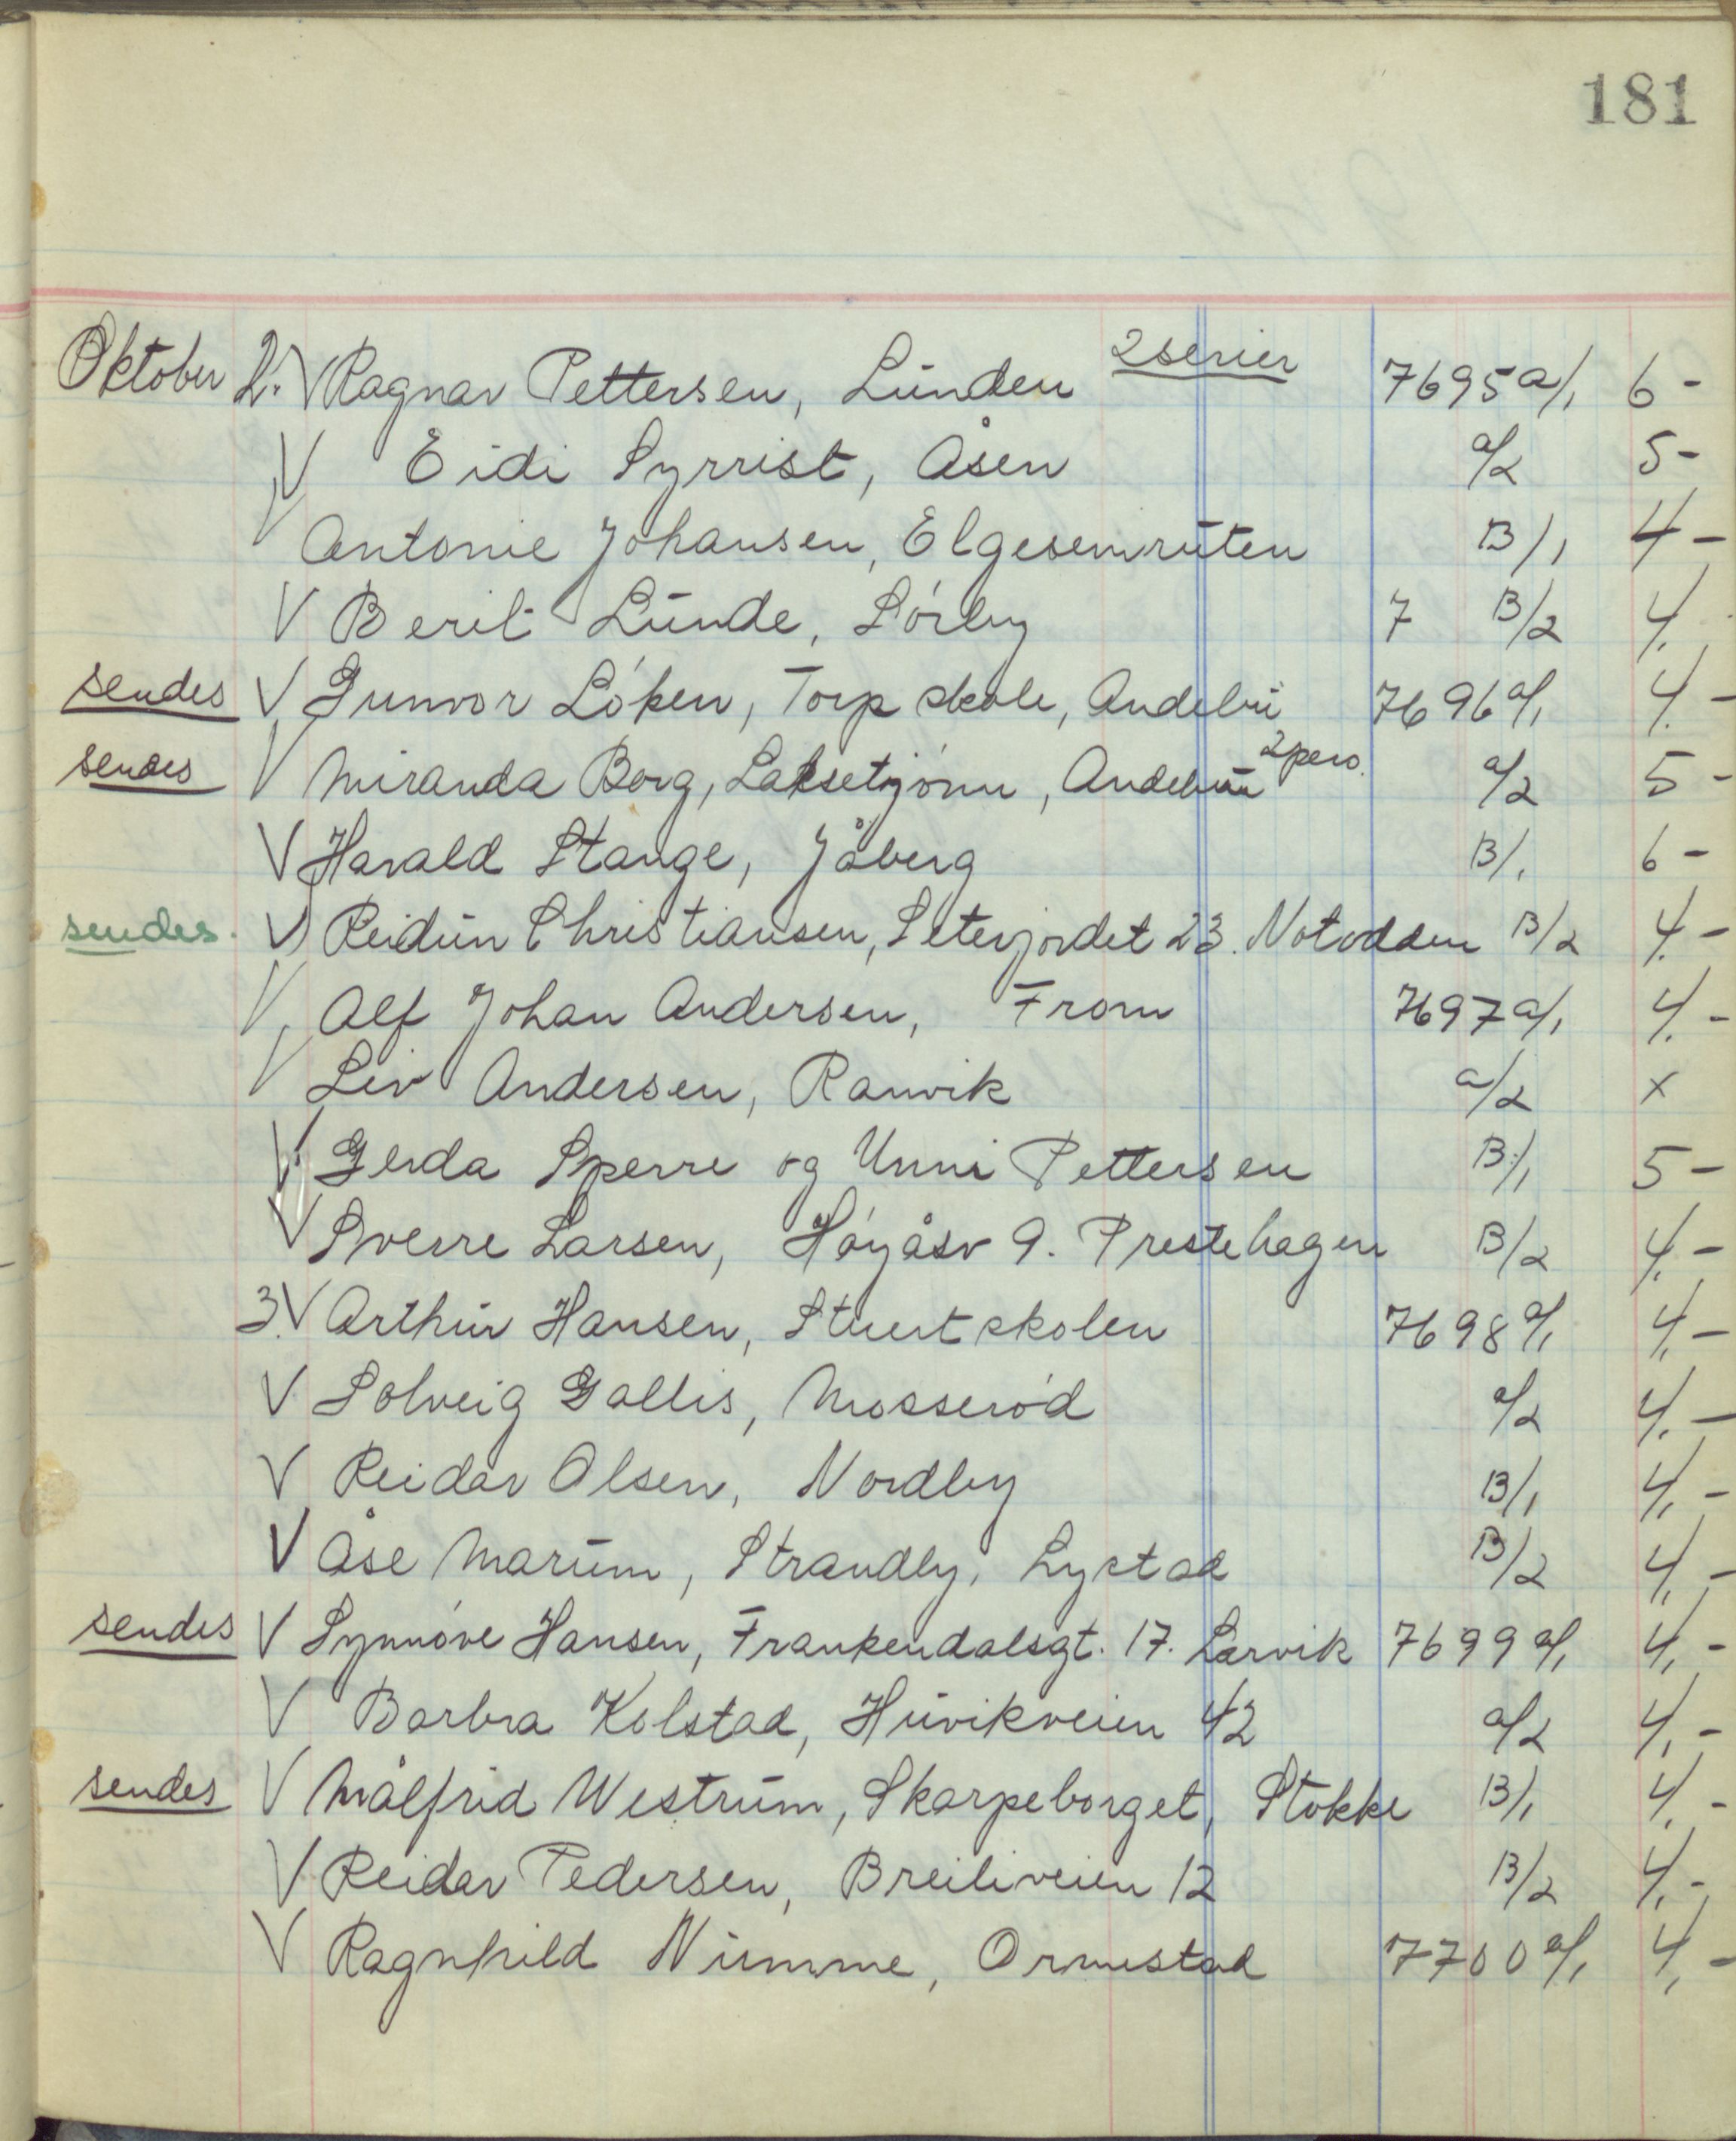 181
Oktober 2. V Ragnar Pettersen, Lunden 2 serier 7695 a/1 6 -
V Eidi Syrrist, Åsen a/2 5 -
V Antonie Johansen, Elgesemruten B/1 4 -
V Berit Lunde, Sörby 7 B/2 4.
sendes V Gunvor Löken, Torp skole, Andebu 7696 a/1 4. -
sendes V Miranda Borg, Laksetjönn, Andebu 2 pers. a/2 5 -
V Harald Stange, Jåberg B/1 6 -
sendes. V Reidun Christiansen, Seterjordet 23. Notodden B/2 4. -
V Alf Johan Andersen, From 7697 a/1 4. -
V Liv Andersen, Ranvik a/2 x
V Gerda Sperre og Unni Pettersen B/1 5 -
V Sverre Larsen, Höyåsv 9. Prestehagen B/2 4. -
3. V Arthur Hansen, Stuertskolen 7698 a/1 4, -
V Solveig Gallis, Mosseröd a/2 4. -
V Reidar Olsen, Nordby B/1 4, -
V Åse Marum, Strandby, Lystad B/2 4, -
sendes V Synnöve Hansen, Frankendalsgt. 17. Larvik 7699 a/1 4, -
V Barbra Kolstad, Huvikveien 42 a/2 4, -
sendes V Målfrid Westrum, Skarpeborget, Stokke B/1 4. -
V Reidar Pedersen, Breiliveien 12 B/2 4. -
V Ragnhild Numme, Ormestad 7700 a/1 4, -